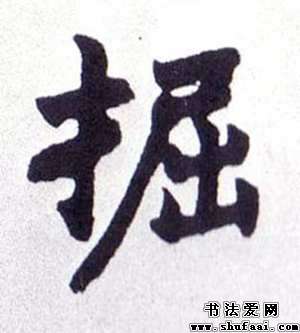 掘
书法爱网
www.shufaai.com